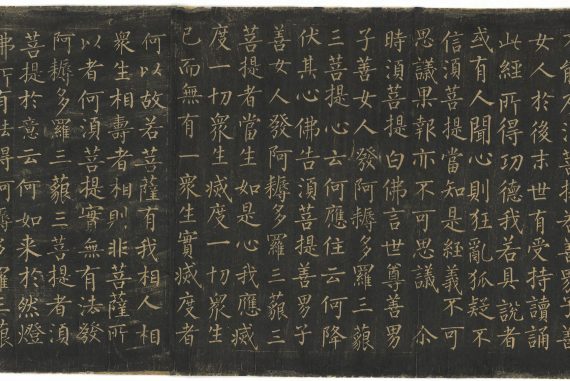 能及須菩提若善男子善
女人於後末世有受持讀誦
此經所得功德我若具說者
或有人聞心則狂亂狐疑不
信須菩提當知是經義不可
思議果報亦不可思議　尒
時須菩提白佛言世尊善男
子善女人發阿耨多羅三藐
三菩提心云何應住云何降
伏其心佛告須菩提善男子
善女人發阿耨多羅三藐三
菩提者當生如是心我應滅
度一切衆生滅度一切衆生
已而無有一衆生實滅度者
何以故若菩薩有我相人相
衆生相壽者相則非菩薩所
以者何須菩提實無有法發
阿耨多羅三藐三菩提者須
菩提於意云何如来於然燈
佛所有法得阿耨多羅三藐